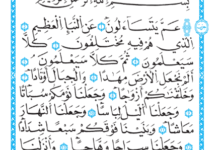 عَمَّ يَتَسَاءَلُونَ عَنِ النَّبَإِ الْعَظِيمِ
الَّذِي هُمْ فِيهِ مُخْتَلِفُونَ كَلَّا
سَيَعْلَمُونَ ثُمَّ كَلَّا سَيَعْلَمُونَ
أَلَمْ نَجْعَلِ الْأَرْضَ مِهَادًا وَالْجِبَالَ أَوْتَادًا
وَخَلَقْنَاكُمْ أَزْوَاجًا وَجَعَلْنَا نَوْمَكُمْ سُبَاتًا
وَجَعَلْنَا اللَّيْلَ لِبَاسًا وَجَعَلْنَا النَّهَارَ
مَعَاشًا وَبَنَيْنَا فَوْقَكُمْ سَبْعًا شِدَادًا